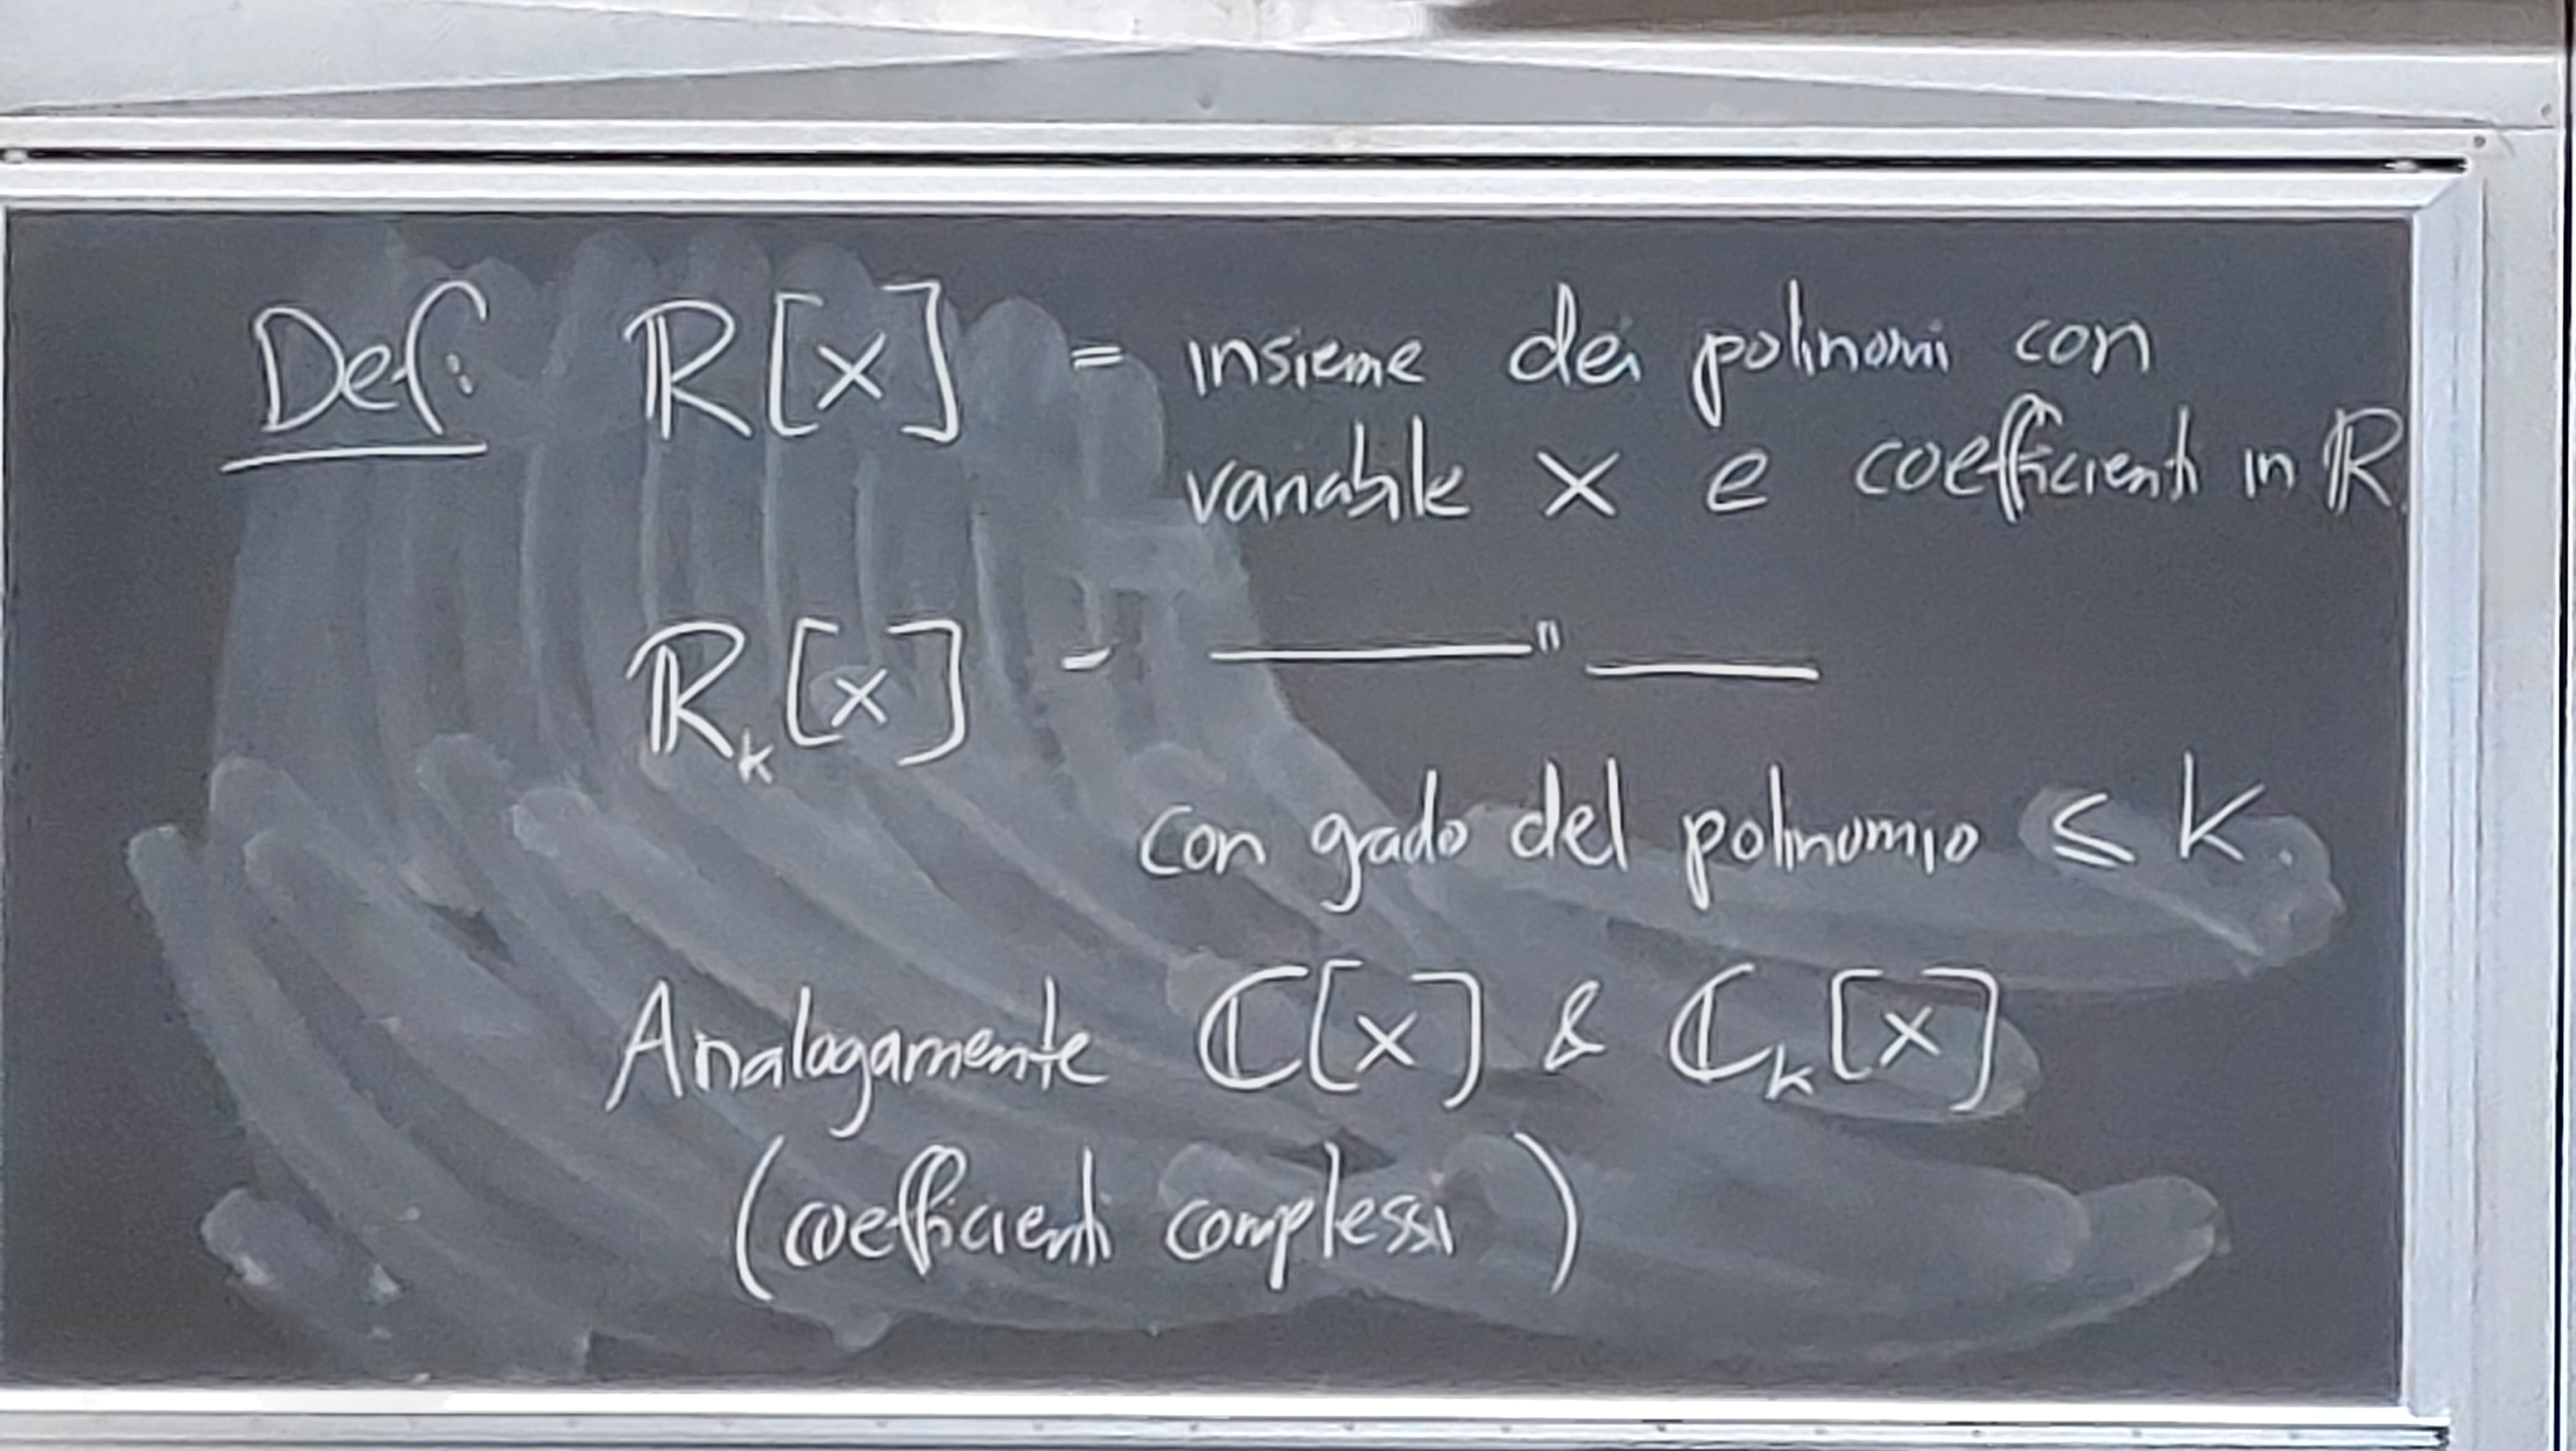 Def: ℝ[x] = insieme dei polinomi con
variabile x e coefficienti in ℝ.
ℝₖ[x] - ——— " ———
con grado del polinomio ≤ k.
Analogamente ℂ[x] & ℂₖ[x]
(coefficienti complessi)